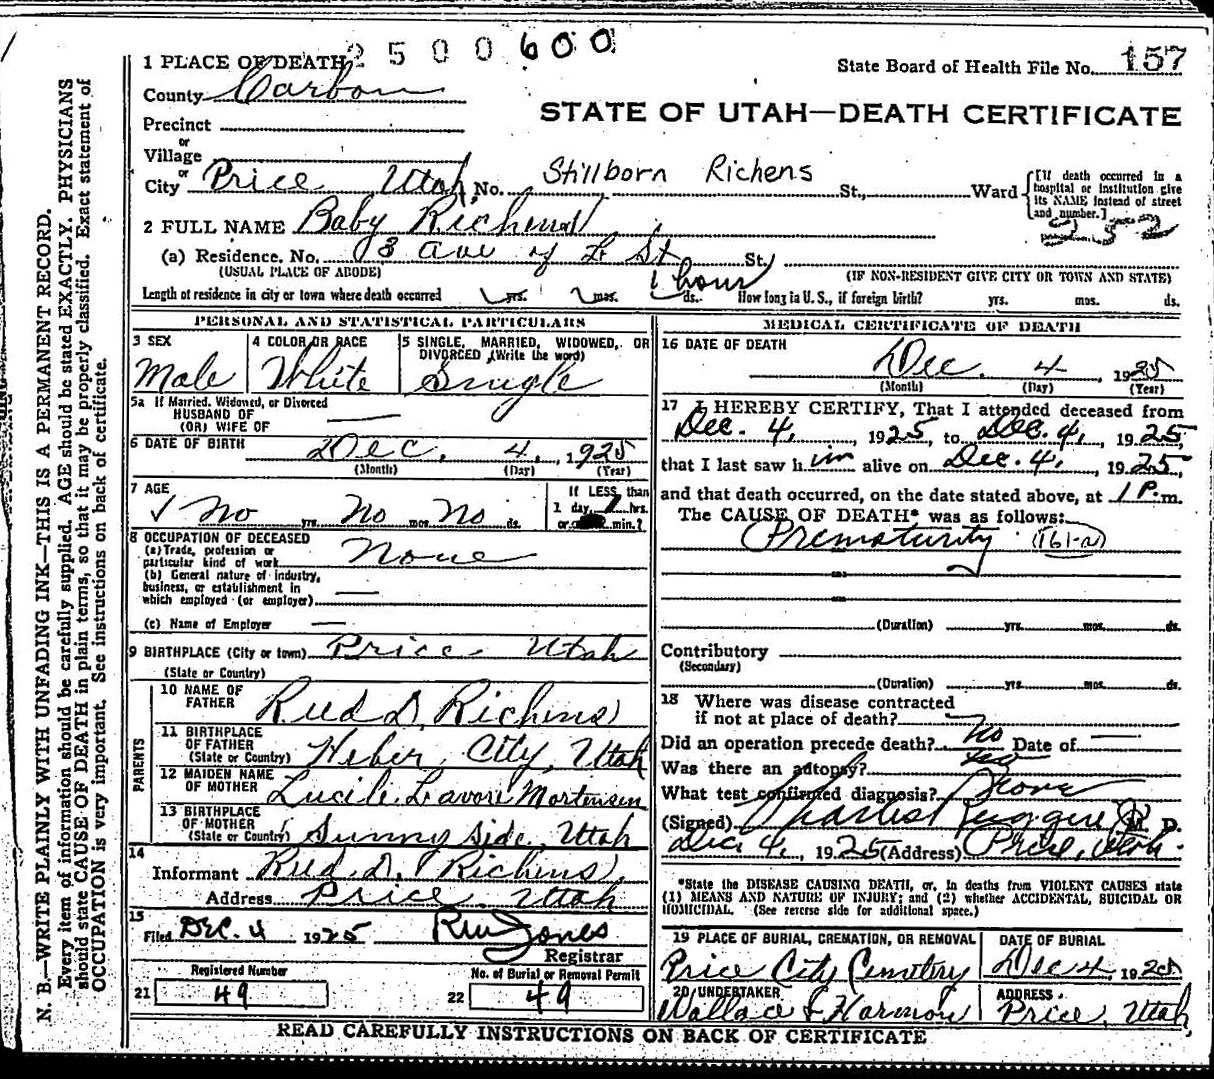 2 5 0 0 6 0 0
1 PLACE OF DEATH
State Board of Health File No. 157
County Carbon
STATE OF UTAH—DEATH CERTIFICATE
Precinct
or
Village
or
City Price Utah, No. Stillborn Richens St., Ward
[If death occurred in a hospital or institution give its NAME instead of street and number.]
252
2 FULL NAME Baby Richens
(a) Residence, No. 3 ave of L St St.,
(USUAL PLACE OF ABODE) (IF NON-RESIDENT GIVE CITY OR TOWN AND STATE)
Length of residence in city or town where death occurred yrs. mos. 1 hour ds. How long in U.S., if foreign birth? yrs. mos. ds.
PERSONAL AND STATISTICAL PARTICULARS
3 SEX Male
4 COLOR OR RACE White
5 SINGLE, MARRIED, WIDOWED, OR DIVORCED (Write the word) Single
5a If Married, Widowed, or Divorced
HUSBAND OF
(OR) WIFE OF
6 DATE OF BIRTH Dec. 4, 1925
(Month) (Day) (Year)
7 AGE No yrs. No mos. No ds.
If LESS than
1 day, 1 hrs.
or min.?
8 OCCUPATION OF DECEASED
(a) Trade, profession or
particular kind of work None
(b) General nature of industry,
business, or establishment in
which employed (or employer)
(c) Name of Employer
9 BIRTHPLACE (City or town) Price Utah
(State or Country)
PARENTS
10 NAME OF FATHER Rud D. Richens
11 BIRTHPLACE OF FATHER (State or Country) Heber City, Utah
12 MAIDEN NAME OF MOTHER Lucile Lavon Mortensen
13 BIRTHPLACE OF MOTHER (State or Country) Sunny side, Utah
14
Informant Rud D. Richens
Address Price Utah
15
Filed DEC. 4 1925 Jones
Registrar
Registered Number
21 49
No. of Burial or Removal Permit
22 49
MEDICAL CERTIFICATE OF DEATH
16 DATE OF DEATH
Dec. 4, 1925
(Month) (Day) (Year)
17 I HEREBY CERTIFY, That I attended deceased from
Dec. 4, 1925, to Dec. 4, 1925,
that I last saw him alive on Dec. 4, 1925,
and that death occurred, on the date stated above, at 1 P. m.
The CAUSE OF DEATH* was as follows:
Prematurity (161-a)
(Duration) yrs. mos. ds.
Contributory
(Secondary)
(Duration) yrs. mos. ds.
18 Where was disease contracted
if not at place of death?
Did an operation precede death? No Date of
Was there an autopsy? No
What test confirmed diagnosis? None
(Signed) Charles Ruggeri Jr M. D.
Dec 4, 1925 (Address) Price, Utah.
*State the DISEASE CAUSING DEATH, or, in deaths from VIOLENT CAUSES state
(1) MEANS AND NATURE OF INJURY; and (2) whether ACCIDENTAL, SUICIDAL OR
HOMICIDAL. (See reverse side for additional space.)
19 PLACE OF BURIAL, CREMATION, OR REMOVAL
Price City Cemetery
DATE OF BURIAL
Dec 4, 1925
20 UNDERTAKER
Wallace & Harmon
ADDRESS
Price, Utah
READ CAREFULLY INSTRUCTIONS ON BACK OF CERTIFICATE
N. B.—WRITE PLAINLY WITH UNFADING INK—THIS IS A PERMANENT RECORD.
Every item of information should be carefully supplied. AGE should be stated EXACTLY. PHYSICIANS
should state CAUSE OF DEATH in plain terms, so that it may be properly classified. Exact statement of
OCCUPATION is very important. See instructions on back of certificate.